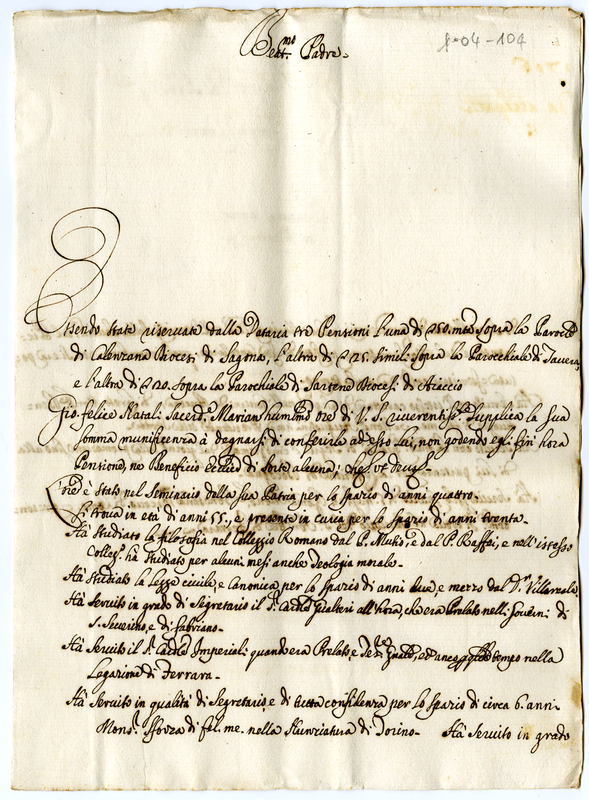 Beat.mo Padre.
Essendo state riservate dalla Dataria tre Pensioni l'una di 50. mta sopra la Paroch.le
di Calenzana Diocesi di Sagona, l'altra di 25. simili sopra la Parochiale di Tavera,
e l'altra di 20. sopra la Parochiale di Sartene Diocesi di Aiaccio
Gio. felice Natali Sacerd.e Marian humil.mo Ore di V. S. riverentis.te supplica la sua
somma munificenza à degnarsi di conferirle ad esso lui, non godendo egli fin hora
Pensione, ne Beneficio eccl.co di sorte alcuna; che
è stato nel Seminario della sua Patria per lo spazio di anni quattro.
Si trova in età di anni 55., è presente in curia per lo spazio di anni trenta.
Hà studiato la filosofia nel Collegio Romano dal P. e dal P. Raffei, e nell'istesso
Colleg.o hà studiato per alcuni mesi anche Teologia morale.
Hà studiato la Legge civile, e Canonica, per lo spazio di anni due, e mezzo dal D.r Villareale.
Hà servito in grado di Segretario il S. Card.le Gualteri all'hora, che era Prelato nelli Governi di
S. Severino, e di fabriano.
Hà servito il S. Card.le Imperiali quando era Prelato, e ed anco qualche tempo nella
Legazione di Ferrara.
Hà servito in qualità di Segretario, e di tutta confidenza per lo spazio di circa 6. anni
Mons.r Sforza di fel. me. nella Nunziatura di Torino. Hà servito in grado